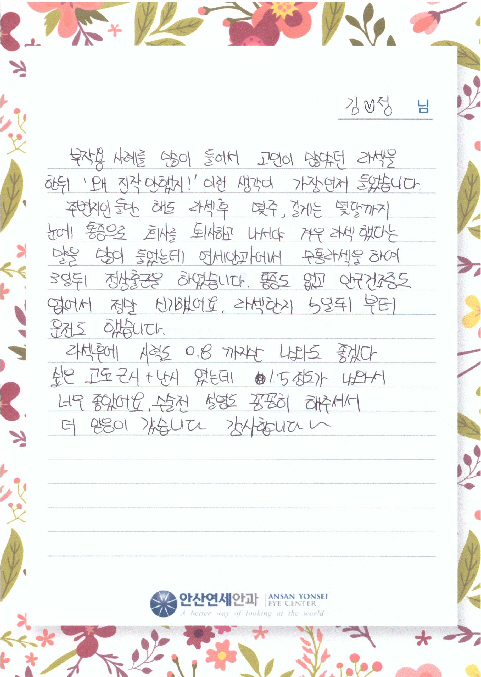 김♡정 님
부작용 사례를 많이 들어서 고민이 많았던 라섹을
한뒤 '왜 진작 안했지!' 이런 생각이 가장먼저 들었습니다
주변지인들만 해도 라섹후 몇주, 길게는 몇달까지
눈에 통증으로 회사를 퇴사하고 나서야 겨우 라섹했다는
말을 많이 들었는데 연세안과에서 무통라섹을 하여
3일뒤 정상출근을 하였습니다. 통증도 없고 안구건조증도
없어서 정말 신기했어요. 라섹한지 5일뒤 부터
운전도 했습니다.
라섹후에 시력도 0.8 까지만 나와도 좋겠다
싶은 고도근시+난시 였는데 1.5정도가 나와서
너무 좋았어요. 수술전 설명도 꼼꼼히 해주셔서
더 믿음이 갔습니다 감사합니다~
안산연세안과 ANSAN YONSEI
EYE CENTER
A better way of looking at the world